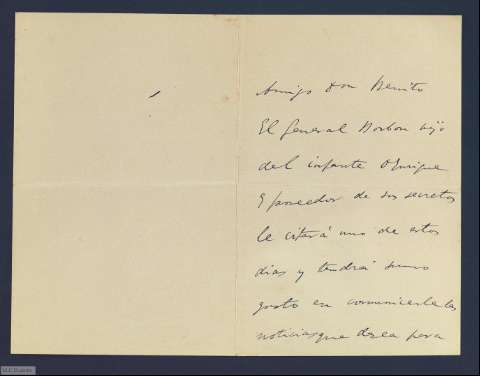 Amigo Don Benito
El General Borbon hijo
del infante D Enrique
y poseedor de sus secretos
le citará uno de estos
dias y tendrá sumo
gusto en comunicarle las
noticias que desea para